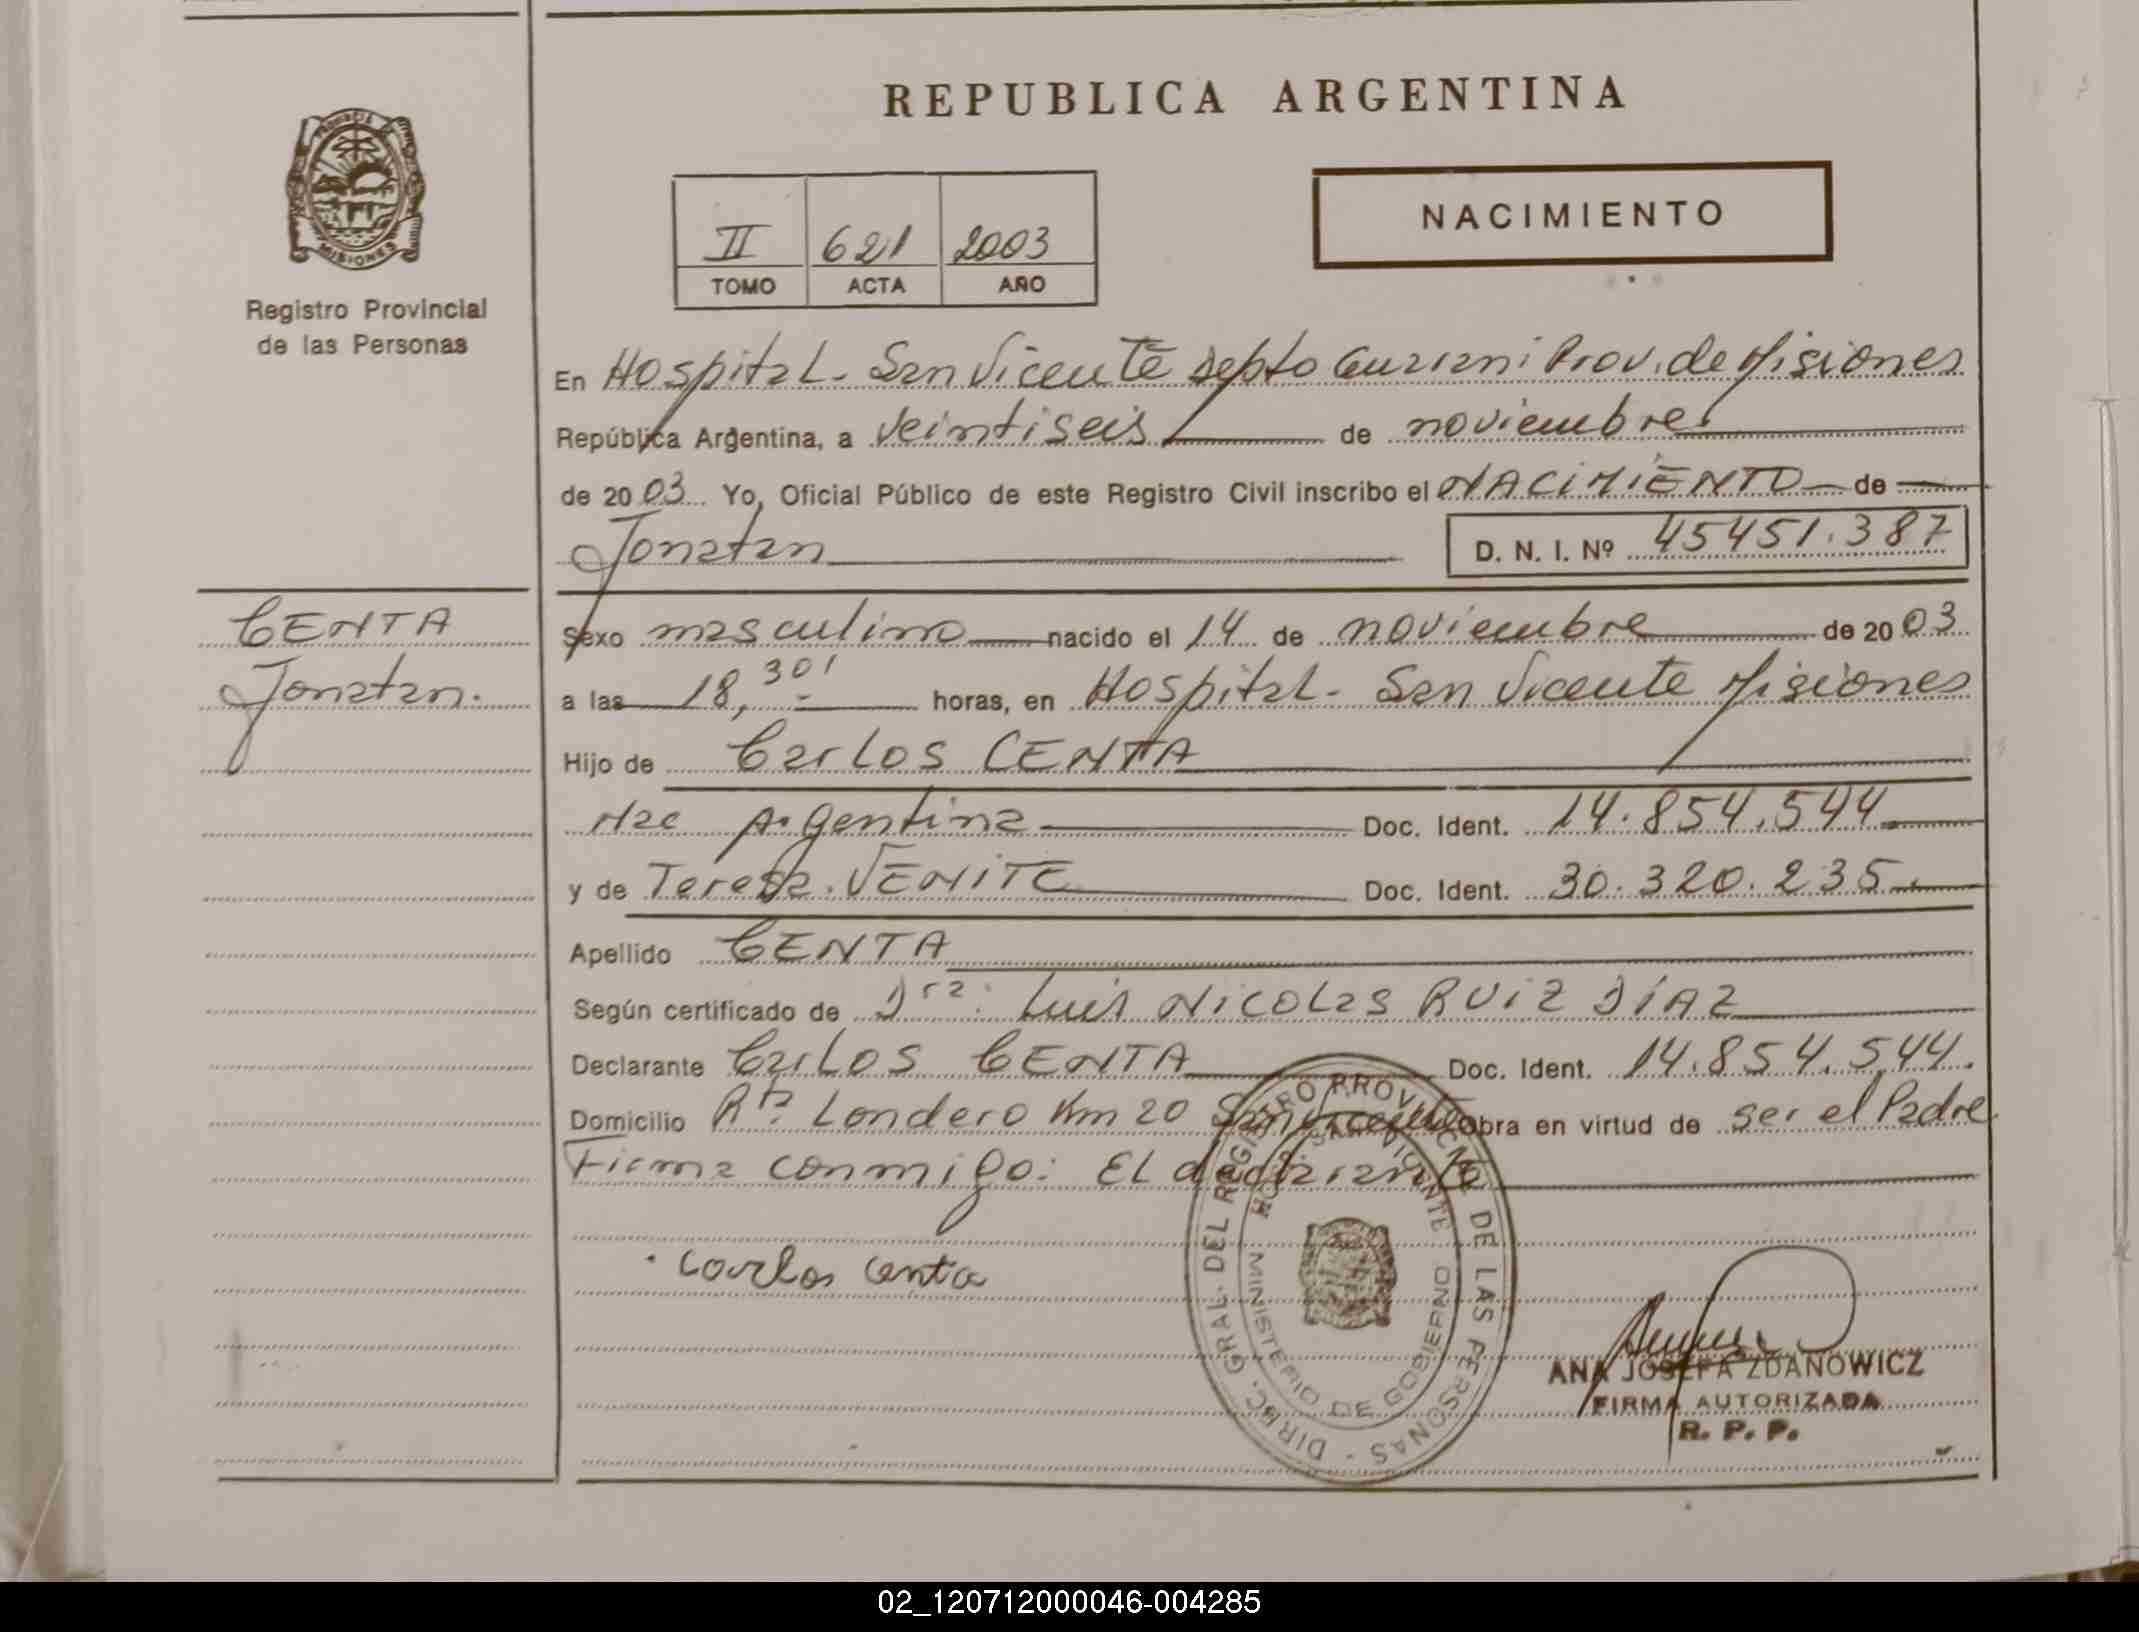 REPUBLICA ARGENTINA
PROVINCIA DE
MISIONES
Registro Provincial
de las Personas
II 621 2003
TOMO ACTA AÑO
NACIMIENTO
En Hospital - San Vicente Depto Guarani Prov. de Misiones
República Argentina, a veintiseis de noviembre
de 2003 Yo, Oficial Público de este Registro Civil inscribo el NACIMIENTO de
Jonatan
D. N. I. Nº 45451.387
CENTA
Jonatan.
Sexo masculino nacido el 14 de noviembre de 2003
a las 18,30' horas, en Hospital - San Vicente Misiones
Hijo de Carlos CENTA
Nac Argentina Doc. Ident. 14.854.544
y de Teresa VENITE Doc. Ident. 30.320.235
Apellido CENTA
Según certificado de Dra: Luis Nicolas RUIZ DÍAZ
Declarante Carlos CENTA Doc. Ident. 14.854.544.
Domicilio Rta Londero Km 20 San Vicente Obra en virtud de ser el Padre
Firma conmigo: El declarante
Carlos Centa
DIREC. GRAL. DEL REGISTRO PROVINCIAL DE LAS PERSONAS -
HOSP. SAN VICENTE
MINISTERIO DE GOBIERNO
ANA JOSEFA ZDANOWICZ
FIRMA AUTORIZADA
R. P. P.
02_120712000046-004285